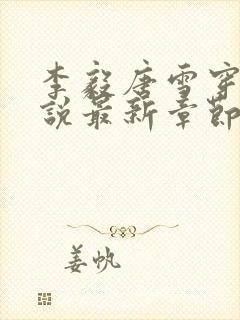 李毅唐雪穿
说最新章节
姜帆